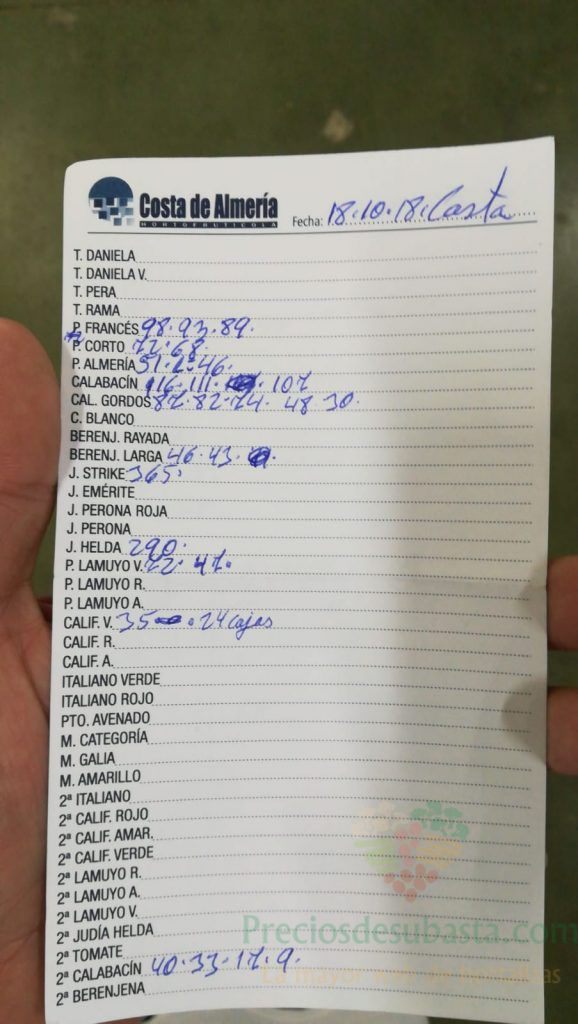 Costa de Almería
HORTOFRUTICOLA
Fecha: 18.10.18. Costa
T. DANIELA
T. DANIELA V.
T. PERA
T. RAMA
P. FRANCÉS 98.93.89.
P. CORTO 72.68.
P. ALMERÍA 51. 46.
CALABACÍN 116.111. 107
CAL. GORDOS 87.82.74. 48 30.
C. BLANCO
BERENJ. RAYADA
BERENJ. LARGA 46.43.
J. STRIKE 365.
J. EMÉRITE
J. PERONA ROJA
J. PERONA
J. HELDA 290.
P. LAMUYO V. 72. 47.
P. LAMUYO R.
P. LAMUYO A.
CALIF. V. 35 . 24 cajas
CALIF. R.
CALIF. A.
ITALIANO VERDE
ITALIANO ROJO
PTO. AVENADO
M. CATEGORÍA
M. GALIA
M. AMARILLO
2ª ITALIANO
2ª CALIF. ROJO
2ª CALIF. AMAR.
2ª CALIF. VERDE
2ª LAMUYO R.
2ª LAMUYO A.
2ª LAMUYO V.
2ª JUDÍA HELDA
2ª TOMATE
2ª CALABACÍN 40.33.17.9.
2ª BERENJENA
Preciosdesubasta.com
La mayor web de hortalizas